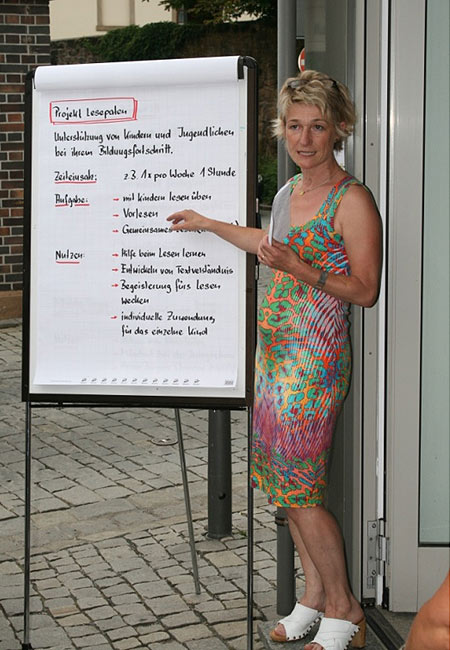 Projekt Lesepaten
Unterstützung von Kindern und Jugendlichen
bei ihrem Bildungsfortschritt.
Zeiteinsatz: z.B. 1x pro Woche 1 Stunde
Aufgabe: → mit Kindern lesen üben
→ Vorlesen
→ Gemeinsames
Nutzen: → Hilfe beim Lesen lernen
→ Entwickeln von Textverständnis
→ Begeisterung fürs Lesen
wecken
→ individuelle Zuwendung
für das einzelne Kind